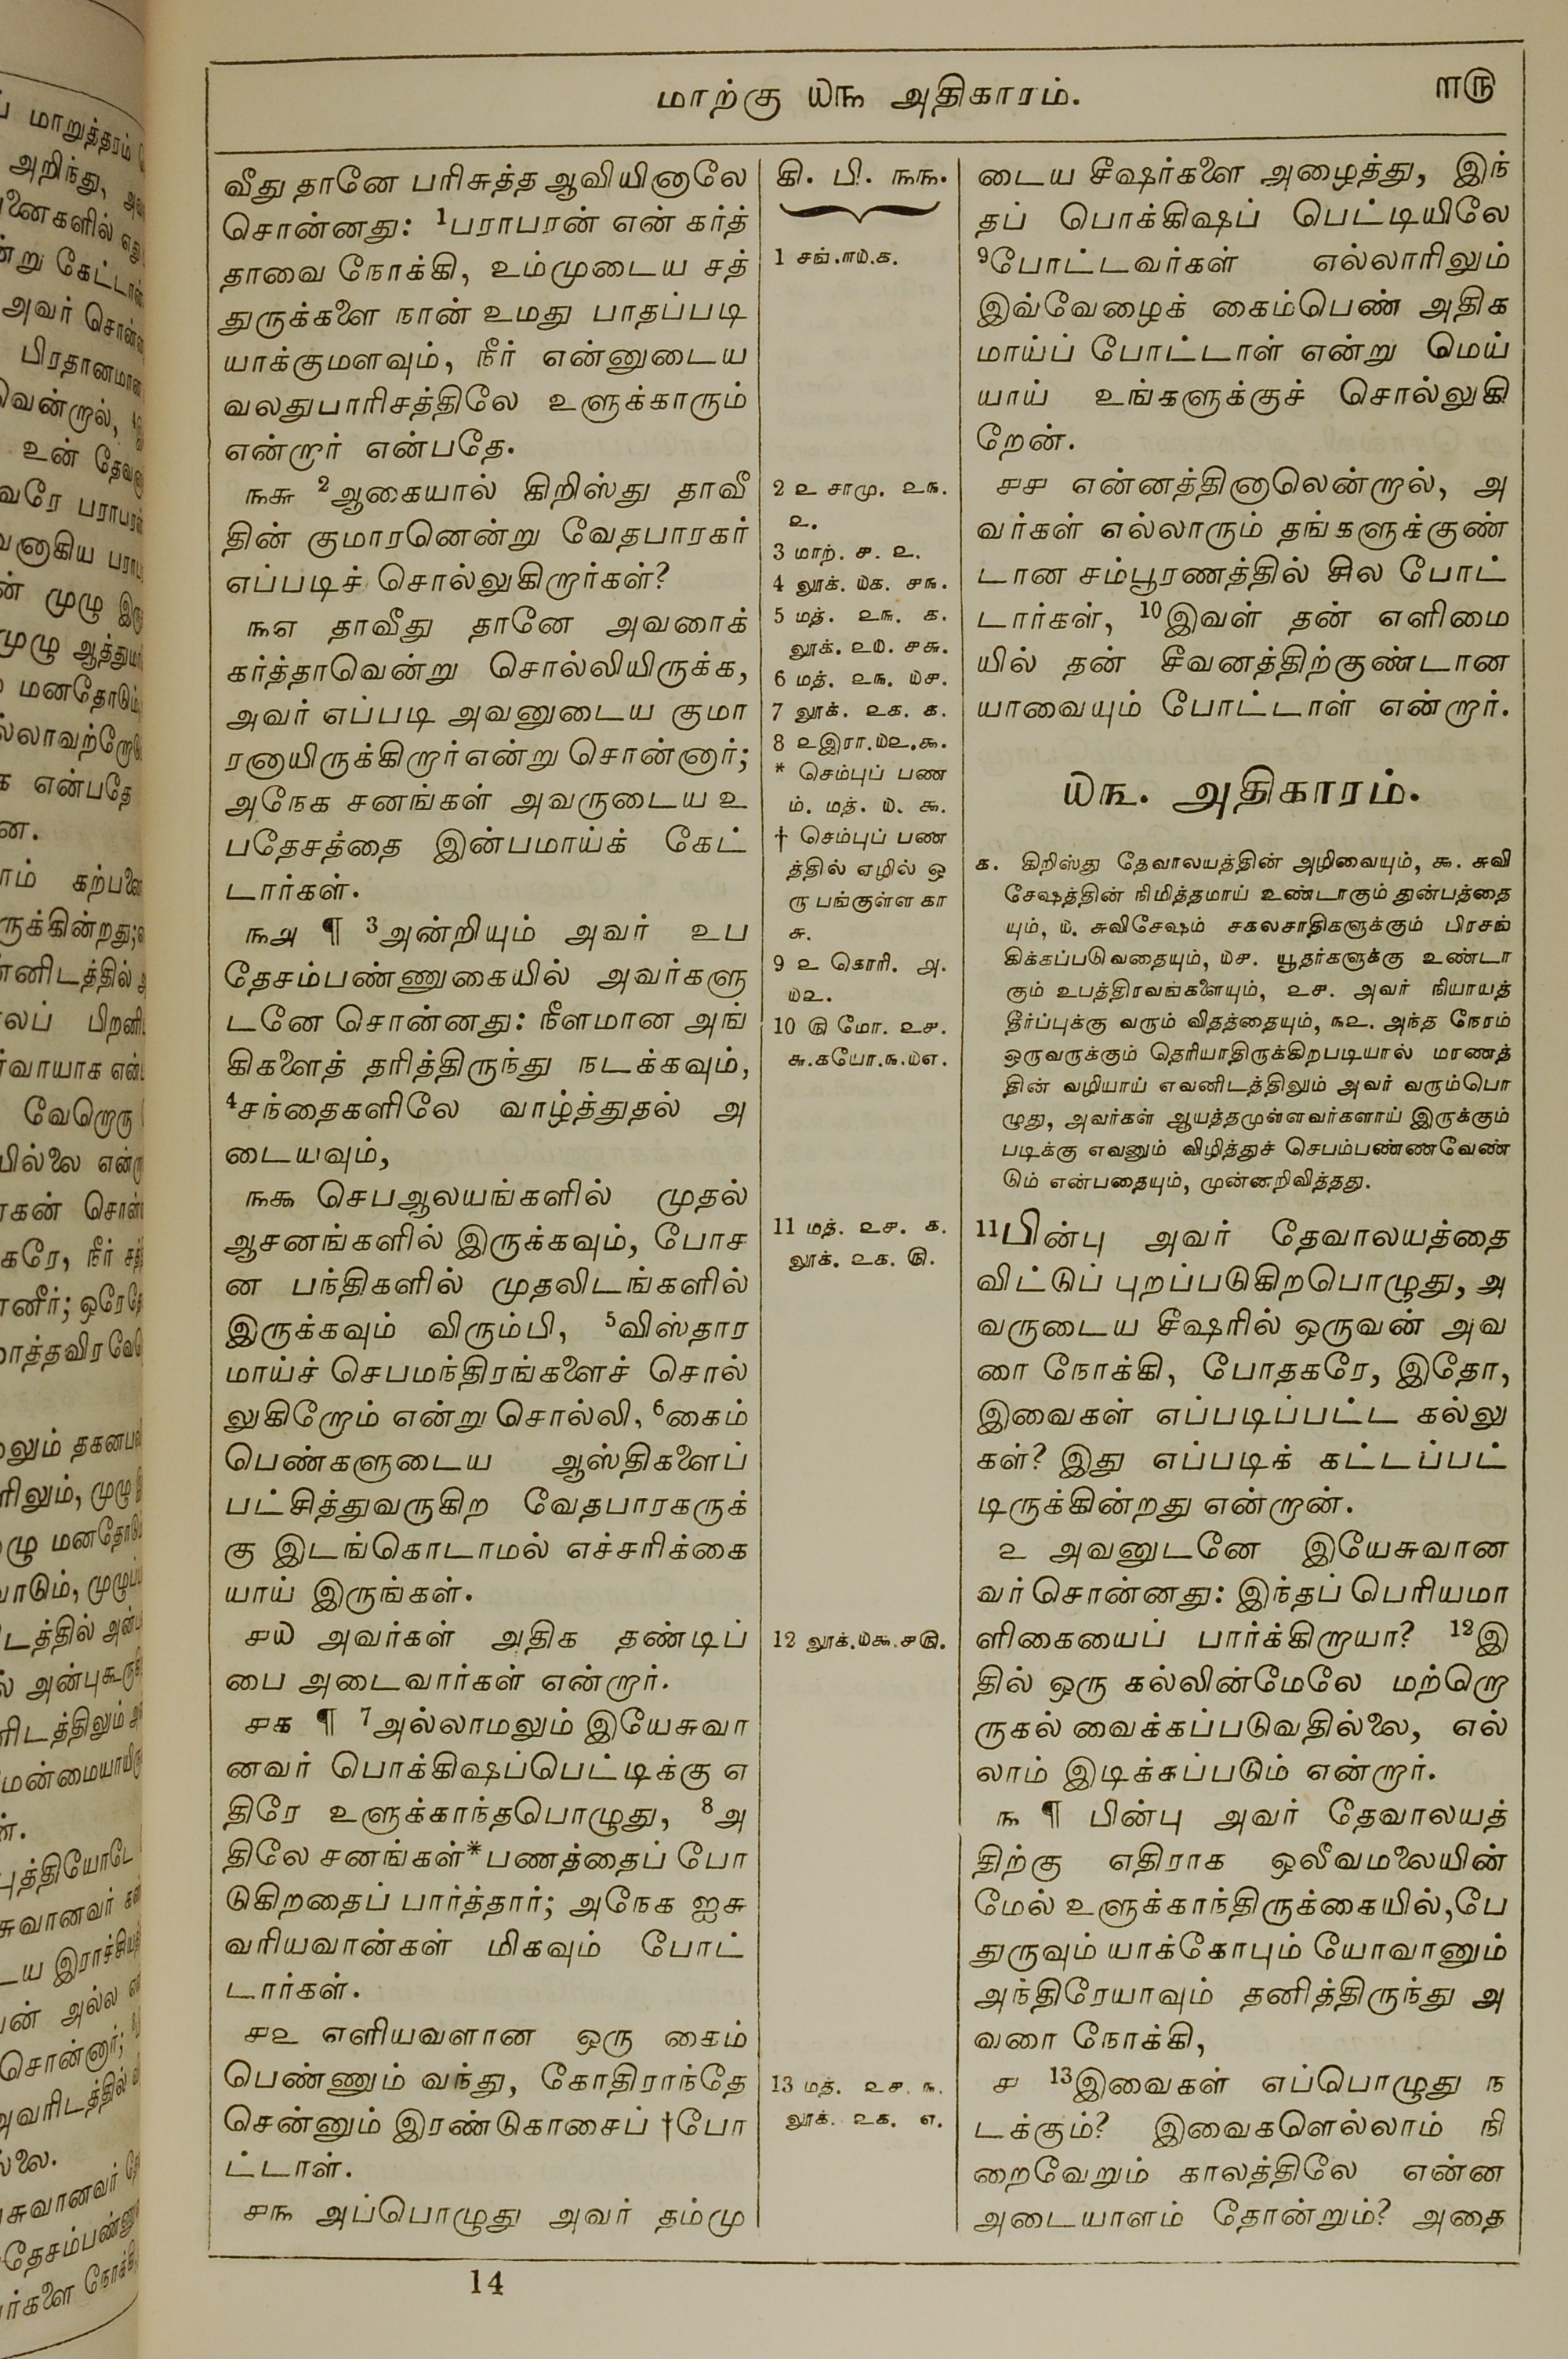 மாற்கு ௰௩ அதிகாரம்.
௱௫
வீது தானே பரிசுத்த ஆவியினாலே
சொன்னது: 1பராபரன் என் கர்த்
தாவை நோக்கி, உம்முடைய சத்
துருக்களை நான் உமது பாதப்படி
யாக்குமளவும், நீர் என்னுடைய
வலதுபாரிசத்திலே உளுக்காரும்
என்றார் என்பதே.
௩௬ 2ஆகையால் கிறிஸ்து தாவீ
தின் குமாரனென்று வேதபாரகர்
எப்படிச் சொல்லுகிறார்கள்?
௩௭ தாவீது தானே அவரைக்
கர்த்தாவென்று சொல்லியிருக்க,
அவர் எப்படி அவனுடைய குமா
ரனாயிருக்கிறார் என்று சொன்னார்;
அநேக சனங்கள் அவருடைய உ
பதேசத்தை இன்பமாய்க் கேட்
டார்கள்.
௩௮ ¶ 3அன்றியும் அவர் உப
தேசம்பண்ணுகையில் அவர்களு
டனே சொன்னது: நீளமான அங்
கிகளைத் தரித்திருந்து நடக்கவும்,
4சந்தைகளிலே வாழ்த்துதல் அ
டையவும்,
௩௯ செபஆலயங்களில் முதல்
ஆசனங்களில் இருக்கவும், போச
ன பந்திகளில் முதலிடங்களில்
இருக்கவும் விரும்பி, 5விஸ்தார
மாய்ச் செபமந்திரங்களைச் சொல்
லுகிறோம் என்று சொல்லி, 6கைம்
பெண்களுடைய ஆஸ்திகளைப்
பட்சித்துவருகிற வேதபாரகருக்
கு இடங்கொடாமல் எச்சரிக்கை
யாய் இருங்கள்.
௪௰ அவர்கள் அதிக தண்டிப்
பை அடைவார்கள் என்றார்.
௪௧ ¶ 7அல்லாமலும் இயேசுவா
னவர் பொக்கிஷப்பெட்டிக்கு எ
திரே உளுக்காந்தபொழுது, 8அ
திலே சனங்கள்*பணத்தைப் போ
டுகிறதைப் பார்த்தார்; அநேக ஐசு
வரியவான்கள் மிகவும் போட்
டார்கள்.
௪௨ எளியவளான ஒரு கைம்
பெண்ணும் வந்து, கோதிராந்தே
சென்னும் இரண்டுகாசைப் †போ
ட்டாள்.
௪௩ அப்பொழுது அவர் தம்மு
கி. பி. ௩௩.
1 சங்.௱௰.௧.
2 ௨ சாமு. ௨௩.
௨.
3 மாற். ௪. ௨.
4 லூக். ௰௧. ௪௩.
5 மத். ௨௩. ௧.
லூக். ௨௰. ௪௬.
6 மத். ௨௩. ௰௪.
7 லூக். ௨௧. ௧.
8 ௨இரா.௰௨.௯.
* செம்புப் பண
ம். மத். ௰. ௯.
† செம்புப் பண
த்தில் ஏழில் ஒ
ரு பங்குள்ள கா
சு.
9 ௨ கொரி. ௮.
௰௨.
10 ௫ மோ. ௨௪.
௬.௧யோ.௩.௰௭.
11 மத். ௨௪. ௧.
லூக். ௨௧. ௫.
12 லூக்.௰௯.௪௫.
13 மத். ௨௪. ௩.
லூக். ௨௧. ௭.
டைய சீஷர்களை அழைத்து, இந்
தப் பொக்கிஷப் பெட்டியிலே
9போட்டவர்கள் எல்லாரிலும்
இவ்வேழைக் கைம்பெண் அதிக
மாய்ப் போட்டாள் என்று மெய்
யாய் உங்களுக்குச் சொல்லுகி
றேன்.
௪௪ என்னத்தினாலென்றால், அ
வர்கள் எல்லாரும் தங்களுக்குண்
டான சம்பூரணத்தில் சில போட்
டார்கள், 10இவள் தன் எளிமை
யில் தன் சீவனத்திற்குண்டான
யாவையும் போட்டாள் என்றார்.
௰௩. அதிகாரம்.
௧. கிறிஸ்து தேவாலயத்தின் அழிவையும், ௯. சுவி
சேஷத்தின் நிமித்தமாய் உண்டாகும் துன்பத்தை
யும், ௰. சுவிசேஷம் சகலசாதிகளுக்கும் பிரசங்
கிக்கப்படுவதையும், ௰௪. யூதர்களுக்கு உண்டா
கும் உபத்திரவங்களையும், ௨௪. அவர் நியாயத்
தீர்ப்புக்கு வரும் விதத்தையும், ௩௨. அந்த நேரம்
ஒருவருக்கும் தெரியாதிருக்கிறபடியால் மரணத்
தின் வழியாய் எவனிடத்திலும் அவர் வரும்பொ
ழுது, அவர்கள் ஆயத்தமுள்ளவர்களாய் இருக்கும்
படிக்கு எவனும் விழித்துச் செபம்பண்ணவேண்
டும் என்பதையும், முன்னறிவித்தது.
11பின்பு அவர் தேவாலயத்தை
விட்டுப் புறப்படுகிறபொழுது, அ
வருடைய சீஷரில் ஒருவன் அவ
ரை நோக்கி, போதகரே, இதோ,
இவைகள் எப்படிப்பட்ட கல்லு
கள்? இது எப்படிக் கட்டப்பட்
டிருக்கின்றது என்றான்.
௨ அவனுடனே இயேசுவான
வர் சொன்னது: இந்தப் பெரியமா
ளிகையைப் பார்க்கிறாயா? 12இ
தில் ஒரு கல்லின்மேலே மற்றொ
ருகல் வைக்கப்படுவதில்லை, எல்
லாம் இடிக்கப்படும் என்றார்.
௩ ¶ பின்பு அவர் தேவாலயத்
திற்கு எதிராக ஒலீவமலையின்
மேல் உளுக்காந்திருக்கையில்,பே
துருவும் யாக்கோபும் யோவானும்
அந்திரேயாவும் தனித்திருந்து அ
வரை நோக்கி,
௪ 13இவைகள் எப்பொழுது ந
டக்கும்? இவைகளெல்லாம் நி
றைவேறும் காலத்திலே என்ன
அடையாளம் தோன்றும்? அதை
14